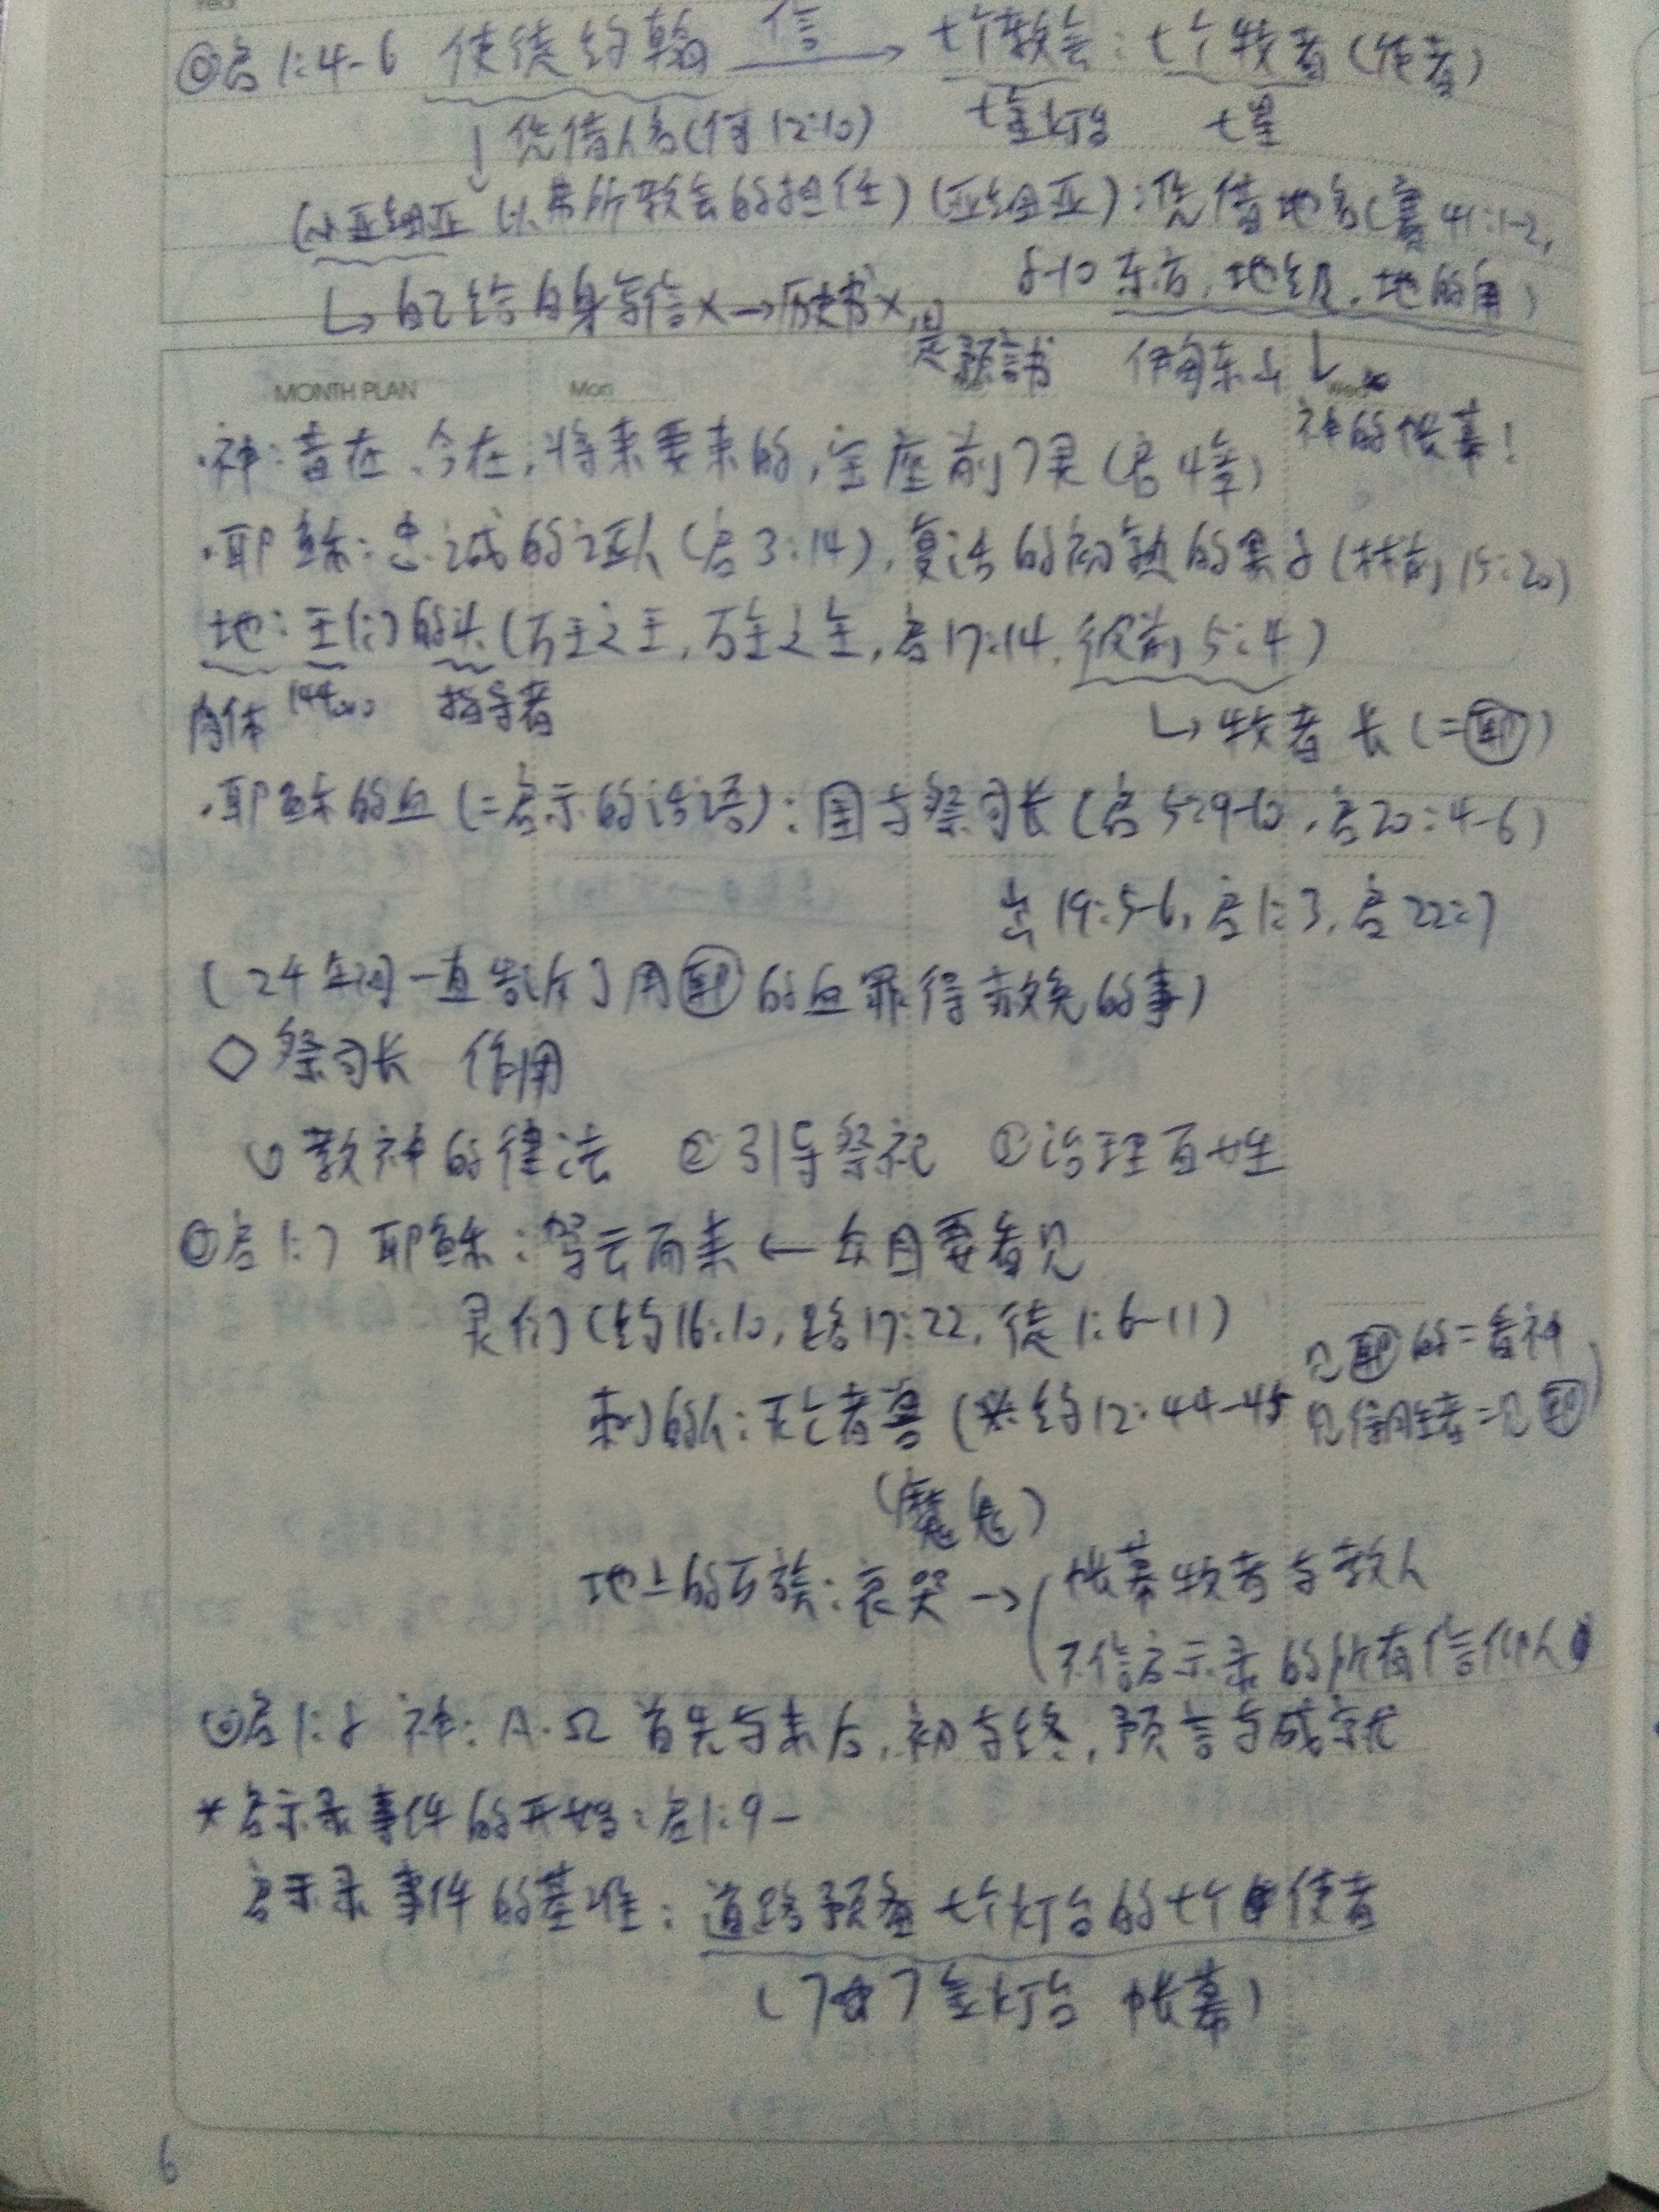 ◎启1:4-6 使徒约翰 信→ 七个教会:七个牧者(使者)
↓凭借人名(何12:10) 七金灯台 七星
(小亚细亚 以弗所教会的担任)(亚细亚):凭借地名(赛41:1-2,
↳自己给自身写信×→历史书×, 是预言书 8-10东方,地极,地的角)
伊甸东山 ↓
MONTH PLAN Mon Wed
神的帐幕!
·神:昔在、今在,将来要来的,宝座前7灵(启4章)
·耶稣:忠诚的证人(启3:14),复活的初熟的果子(林前15:20)
地:王们的头(万王之王,万主之主,启17:14,彼前5:4)
肉体 144000 指导者
↳牧者长(=耶)
·耶稣的血(=启示的话语):国与祭司长(启5:9-10,启20:4-6)
出19:5-6,启1:3,启22:7
(24年间一直告诉了用耶的血罪得赦免的事)
◇祭司长 作用
①教神的律法 ②引导祭祀 ③治理百姓
启1:7 耶稣:驾云而来←众目要看见
灵们(约16:10,路17:22,徒1:6-11)
刺的人:灭亡者兽(※约12:44-45 见耶的=看神
见得胜者=见耶)
(魔鬼)
地上的万族:哀哭→(帐幕牧者与教人
不信启示录的所有信仰人
启1:8 神:A·Ω 首先与末后,初与终,预言与成就
*启示录事件的开始:启1:9-
启示录事件的基准:道路预备七个灯台的七个使者
(7 7金灯台 帐幕)
6